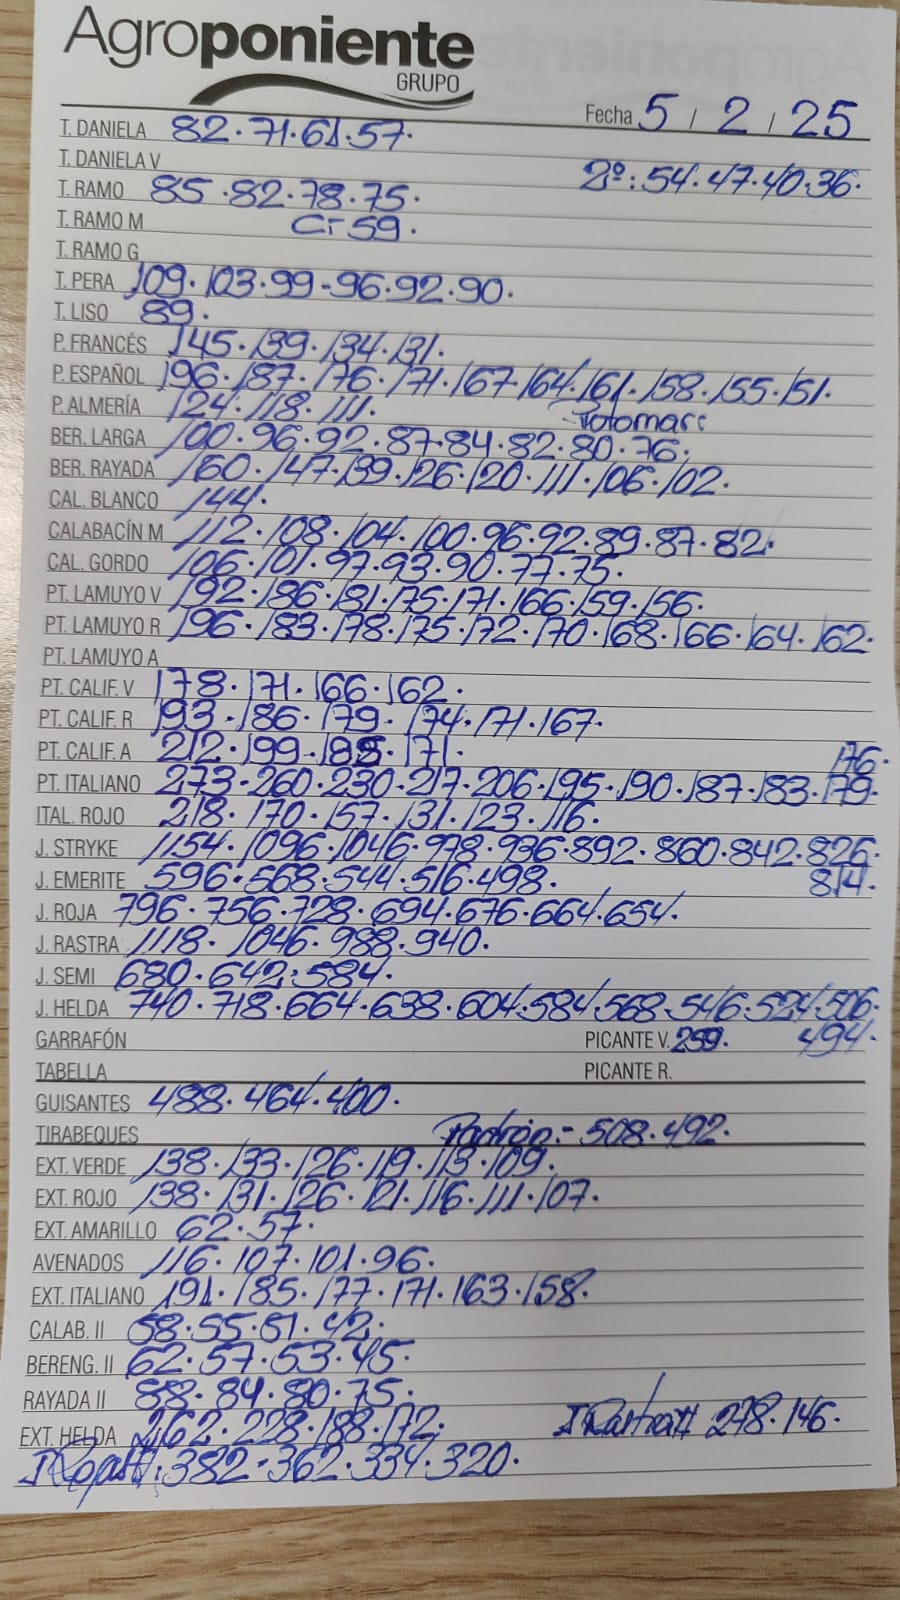 Agroponiente
GRUPO
Fecha 5 / 2 / 25
T. DANIELA 82.71.61.57.
T. DANELA V 2º: 54.47.40.36.
T. RAMO 85.82.78.75.
T. RAMO M C-59.
T. RAMO G
T. PERA 109.103.99-96.92.90.
T. LISO 89.
P. FRANCÉS 145.139.134.131.
P. ESPAÑOL 196.187.176.171.167.164.161.158.155.151.
P. ALMERÍA 124.118.111.
BER. LARGA 100.96.92.87.84.82.80.76.
BER. RAYADA 160.147.139.126.120.111.106.102.
CAL. BLANCO 144.
CALABACÍN M 112.108.104.100.96.92.89.87.82.
CAL. GORDO 106.101.97.93.90.77.75.
PT. LAMUYO V 192.186.181.175.171.166.159.156.
PT. LAMUYO R 196.183.178.175.172.170.168.166.164.162.
PT. LAMUYO A
PT. CALIF. V 178.171.166.162.
PT. CALIF. R 193.186.179.174.171.167.
PT. CALIF. A 212.199.188.171. 176.
PT. ITALIANO 273.260.230.217.206.195.190.187.183.179.
ITAL. ROJO 218.170.157.131.123.116.
J. STRYKE 1154.1096.1046.978.936.892.860.842.826.
J. EMERITE 596.568.544.516.498. 814.
J. ROJA 796.756.728.694.676.664.654.
J. RASTRA 1118.1046.988.940.
J. SEMI 680.642.584.
J. HELDA 740.718.664.638.604.584.568.546.524.506.
GARRAFÓN PICANTE V. 259. 494.
TABELLA PICANTE R.
GUISANTES 488.464.400.
TIRABEQUES Padrón.- 508.492.
EXT. VERDE 138.133.126.119.113.109.
EXT. ROJO 138.131.126.121.116.111.107.
EXT. AMARILLO 62.57.
AVENADOS 116.107.101.96.
EXT. ITALIANO 191.185.177.171.163.158.
CALAB. II 58.55.51.42.
BERENG. II 62.57.53.45.
RAYADA II 88.84.80.75.
EXT. HELDA 262.228.188.172. 278.146.
382.362.334.320.